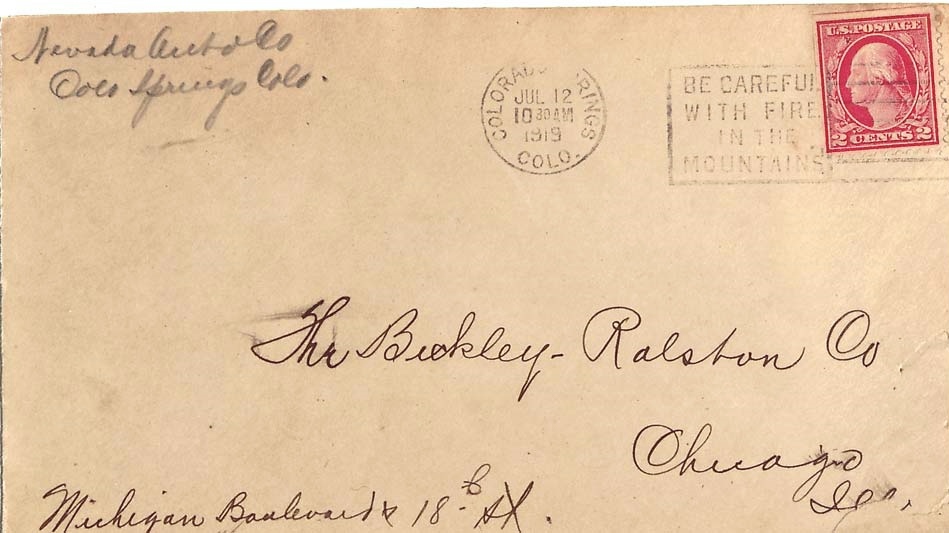 Nevada Auto Co
Colo Springs Colo.
COLORADO SPRINGS
JUL 12
10 30 AM
1919
COLO.
BE CAREFUL
WITH FIRE
IN THE
MOUNTAINS
U.S. POSTAGE
2 CENTS 2
The Beckley-Ralston Co
Chicago
Ill.
Michigan Boulevard & 18th St.